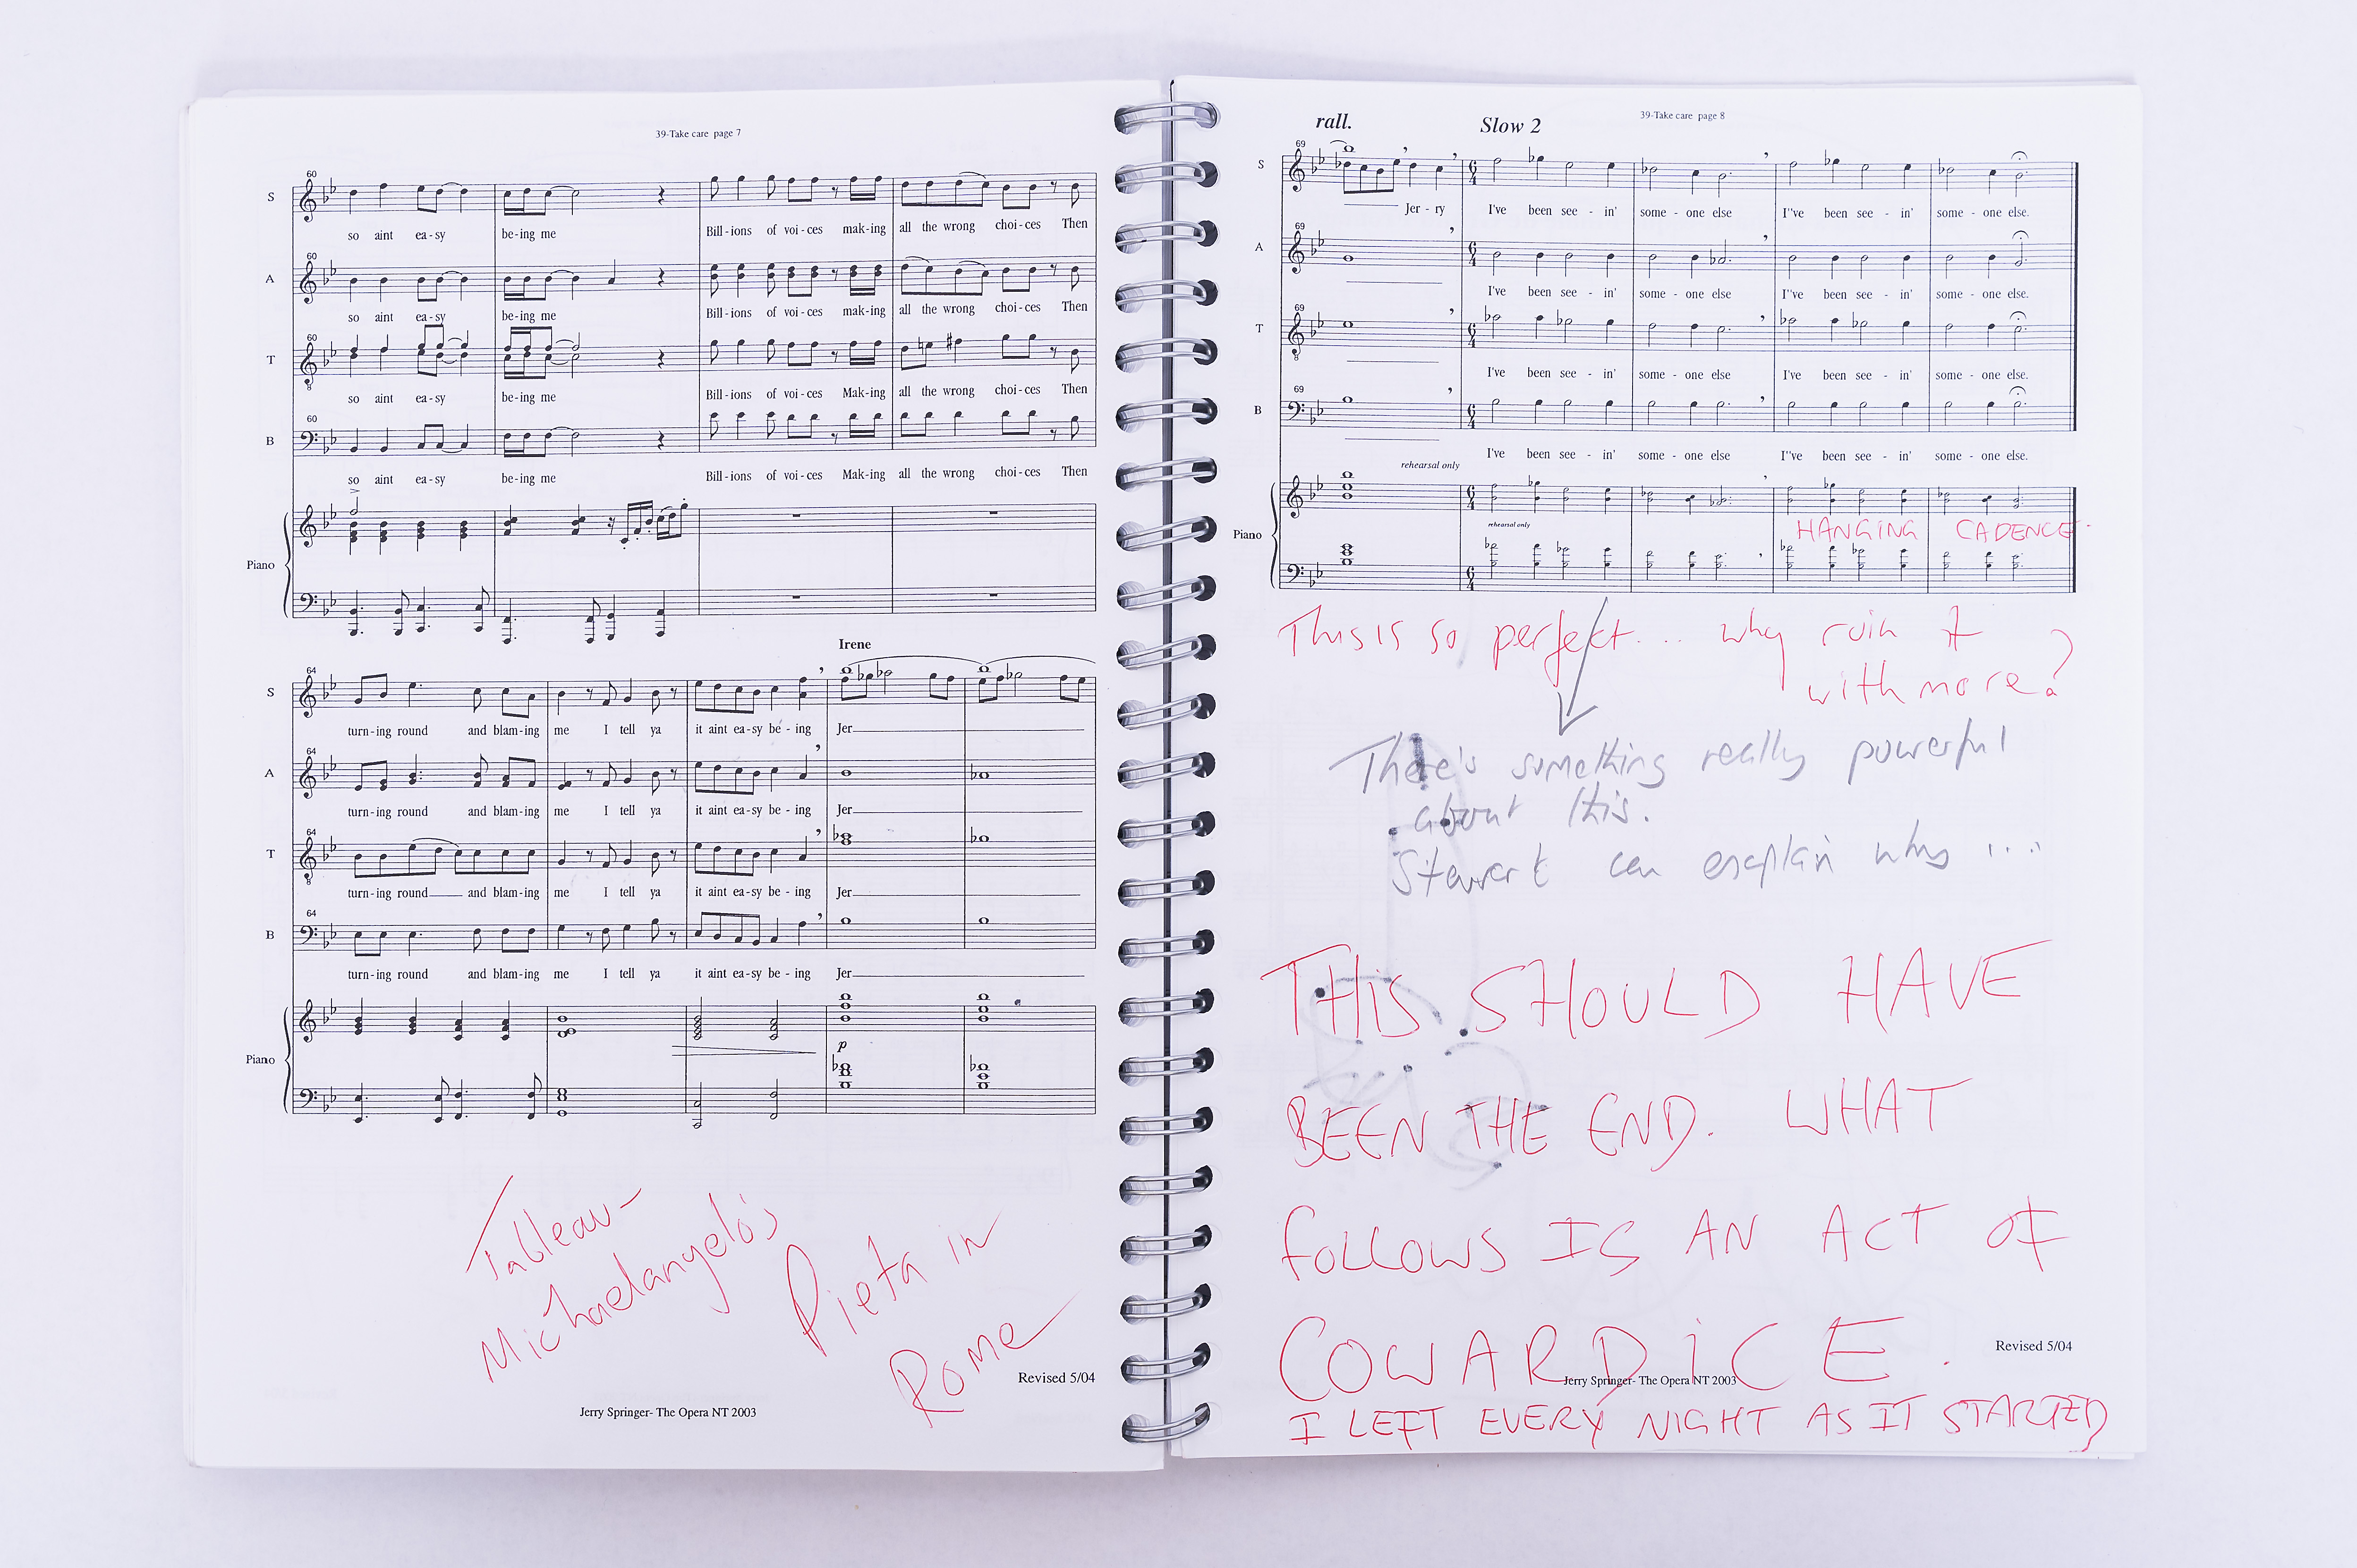 39-Take care page 7
S 60
so aint ea-sy be-ing me Bill-ions of voi-ces mak-ing all the wrong choi-ces Then
A 60
so aint ea-sy be-ing me Bill-ions of voi-ces mak-ing all the wrong choi-ces Then
T 60
8
so aint ea-sy be-ing me Bill-ions of voi-ces Mak-ing all the wrong choi-ces Then
B 60
so aint ea-sy be-ing me Bill-ions of voi-ces Mak-ing all the wrong choi-ces Then
Piano
Irene
S 64
turn-ing round and blam-ing me I tell ya it aint ea-sy be - ing Jer
A 64
turn-ing round and blam-ing me I tell ya it aint ea-sy be - ing Jer
T 64
8
turn-ing round and blam-ing me I tell ya it aint ea-sy be - ing Jer
B 64
turn-ing round and blam-ing me I tell ya it aint ea-sy be - ing Jer
Piano
p
Tableau -
Michaelangelo's
Pieta in
Rome
Revised 5/04
Jerry Springer- The Opera NT 2003
39-Take care page 8
rall. Slow 2
S 69 6 4
Jer - ry I've been see - in' some - one else I"ve been see - in' some - one else.
A 69 6 4
I've been see - in' some - one else I"ve been see - in' some - one else.
T 69 6 4
8
I've been see - in' some - one else I've been see - in' some - one else.
B 69 6 4
I've been see - in' some - one else I"ve been see - in' some - one else.
rehearsal only
6 4
rehearsal only
Piano
HANGING CADENCE.
6 4
This is so perfect... why ruin it
with more?
There's something really powerful
about this.
Stewart can explain why ...
THIS SHOULD HAVE
BEEN THE END. WHAT
FOLLOWS IS AN ACT OF
COWARDICE.
Revised 5/04
Jerry Springer- The Opera NT 2003
I LEFT EVERY NIGHT AS IT STARTED